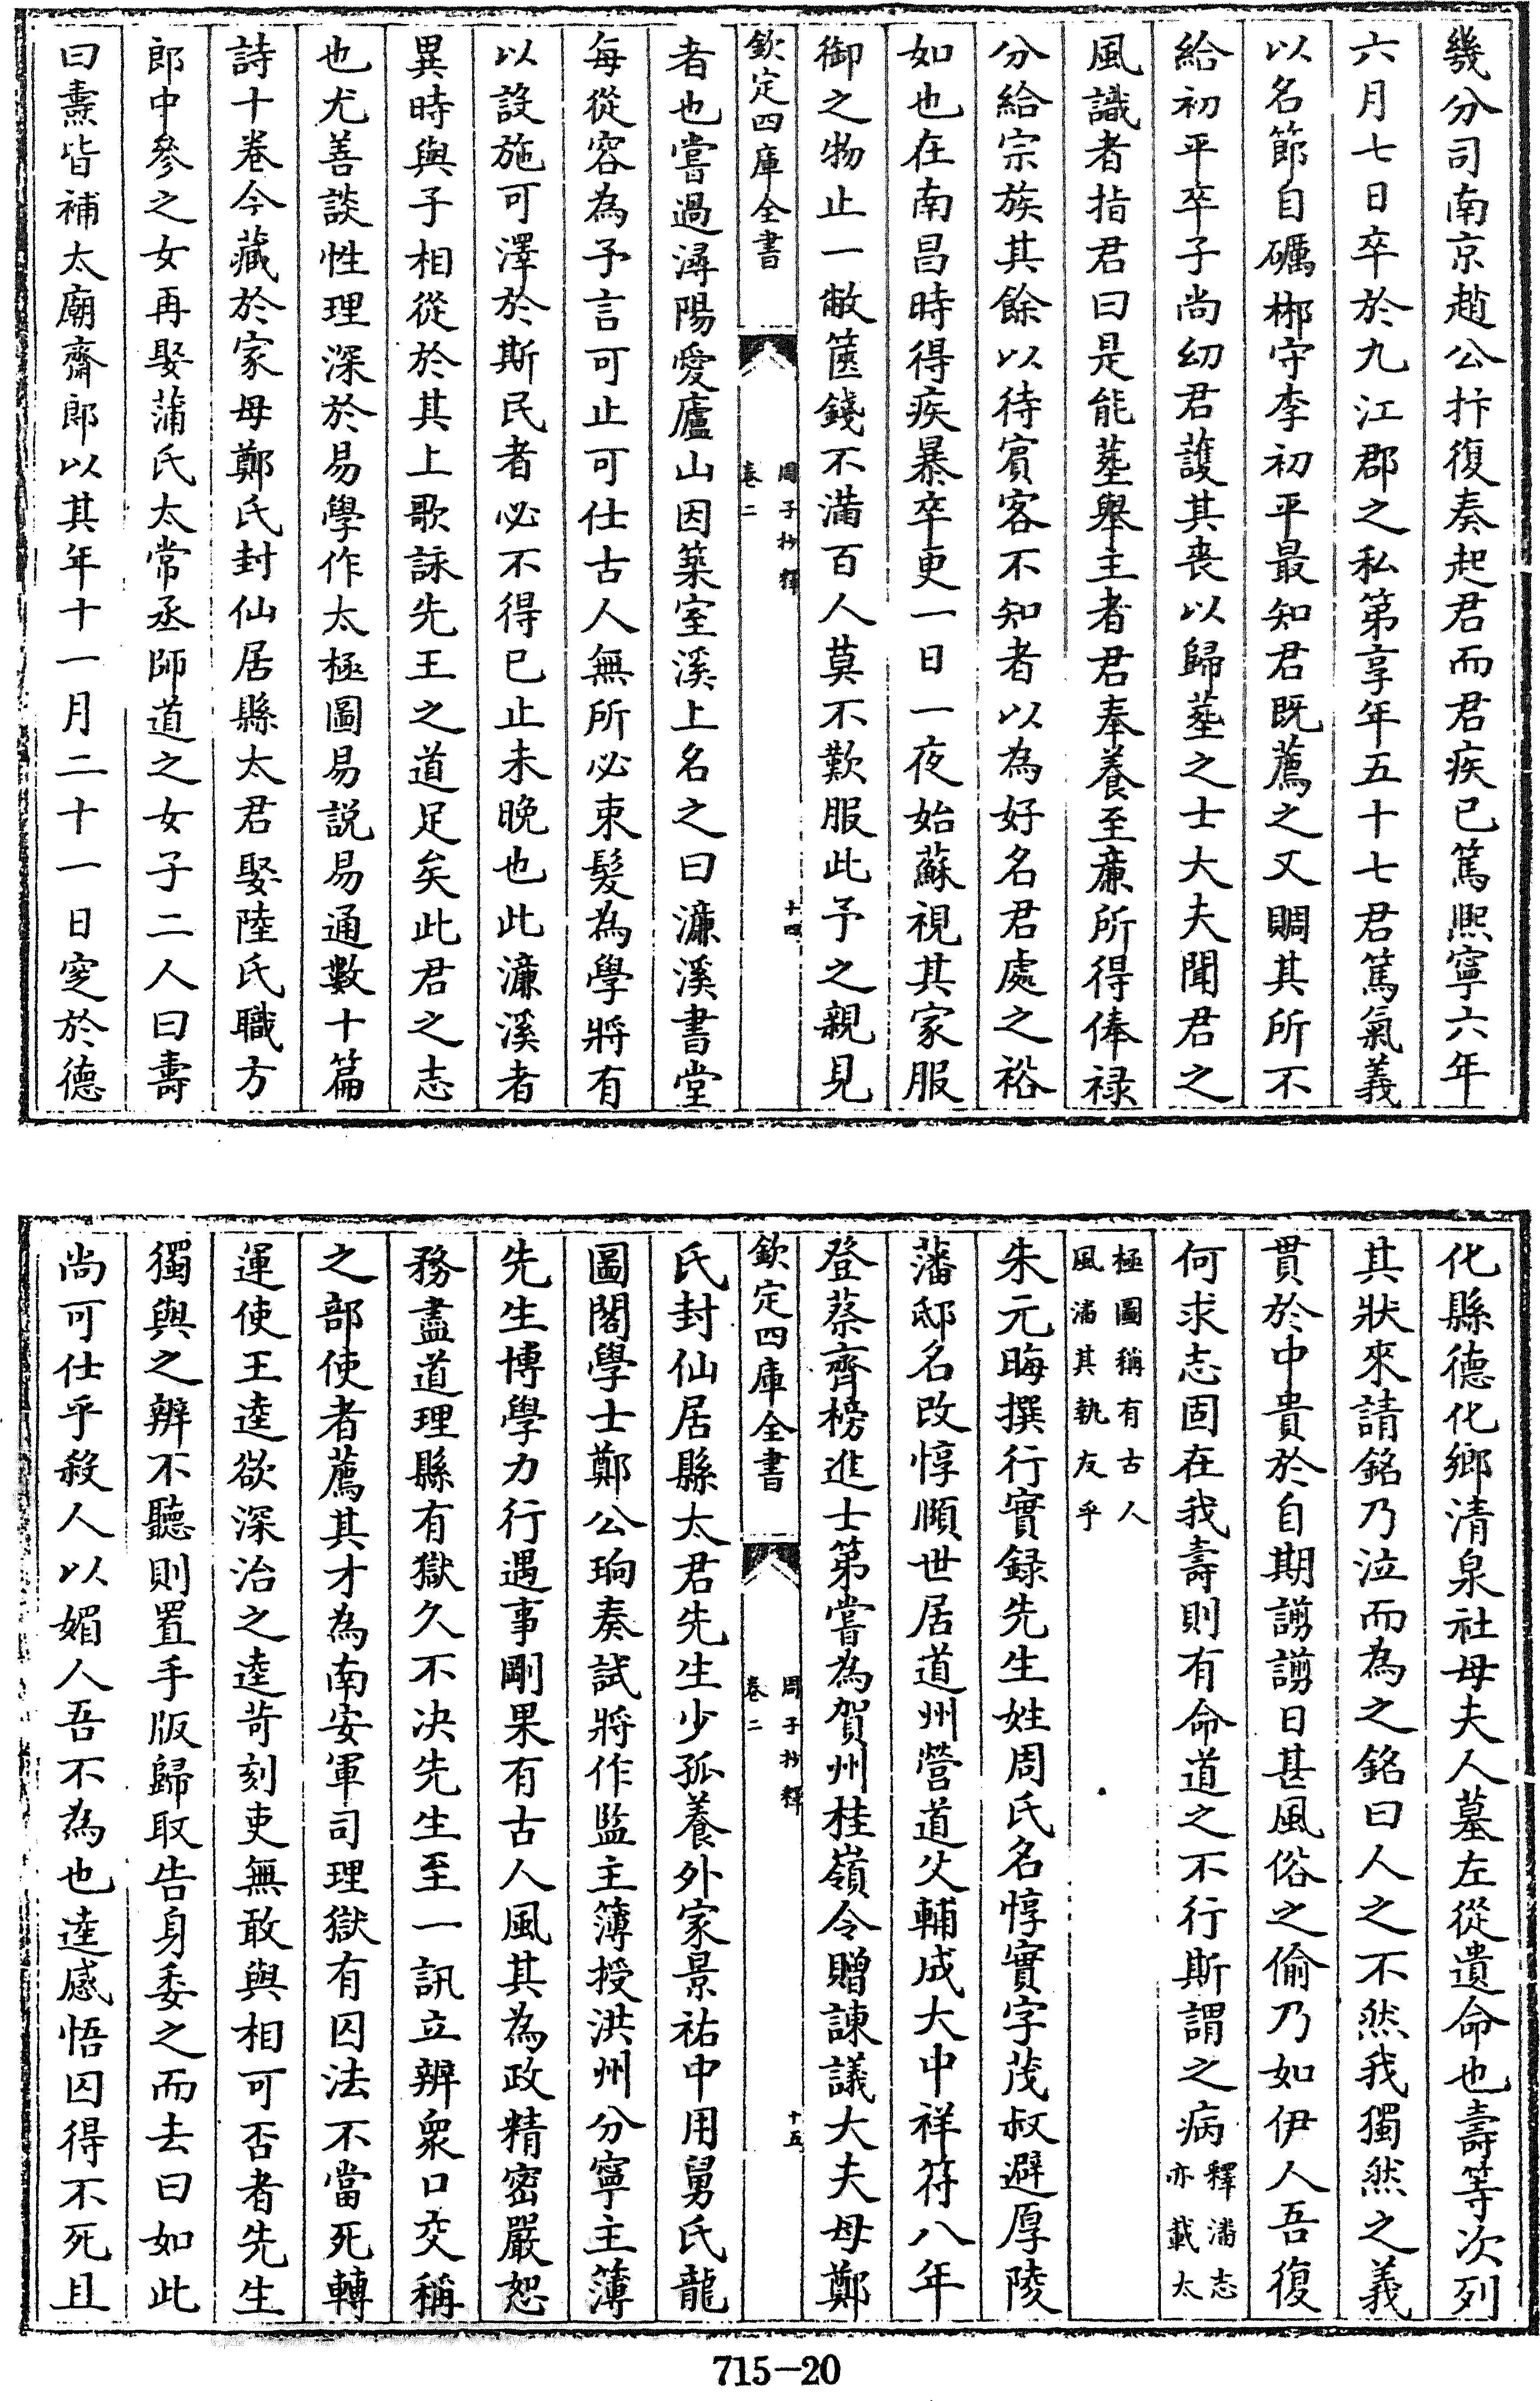 幾分司南京趙公抃復奏起君而君疾已篤熙寧六年
六月七日卒於九江郡之私第享年五十七君篤氣義
以名節自礪郴守李初平最知君既薦之又賙其所不
給初平卒子尚幼君護其喪以歸塟之士大夫聞君之
風識者指君曰是能塟舉主者君奉養至廉所得俸禄
分給宗族其餘以待賔客不知者以為好名君處之裕
如也在南昌時得疾暴卒更一日一夜始蘇視其家服
御之物止一敝篋錢不滿百人莫不歎服此予之親見
欽定四庫全書
周子抄釋
卷二
十四
者也嘗過潯陽愛廬山因築室溪上名之曰濂溪書堂
每從容為予言可止可仕古人無所必束髮為學將有
以設施可澤於斯民者必不得已止未晚也此濂溪者
異時與子相從於其上歌詠先王之道足矣此君之志
也尤善談性理深於易學作太極圖易說易通數十篇
詩十卷今藏於家母鄭氏封仙居縣太君娶陸氏職方
郎中參之女再娶蒲氏太常丞師道之女子二人曰壽
曰燾皆補太廟齋郎以其年十一月二十一日窆於德
化縣德化鄉清泉社母夫人墓左從遺命也壽等次列
其狀來請銘乃泣而為之銘曰人之不然我獨然之義
貫於中貴於自期謭謭日甚風俗之偷乃如伊人吾復
何求志固在我壽則有命道之不行斯謂之病釋潘志亦載太
極圖稱有古人風潘其執友乎
朱元晦撰行實録先生姓周氏名惇實字茂叔避厚陵
藩邸名改惇頤世居道州營道父輔成大中祥符八年
登蔡齊榜進士第嘗為賀州桂嶺令贈諫議大夫母鄭
欽定四庫全書
周子抄釋
卷二
十五
氏封仙居縣太君先生少孤養外家景祐中用舅氏龍
圖閣學士鄭公珦奏試將作監主簿授洪州分寧主簿
先生博學力行遇事剛果有古人風其為政精密嚴恕
務盡道理縣有獄久不決先生至一訊立辨衆口交稱
之部使者薦其才為南安軍司理獄有囚法不當死轉
運使王逵欲深治之逵苛刻吏無敢與相可否者先生
獨與之辨不聽則置手版歸取告身委之而去曰如此
尚可仕乎殺人以媚人吾不為也逵感悟囚得不死且
715-20